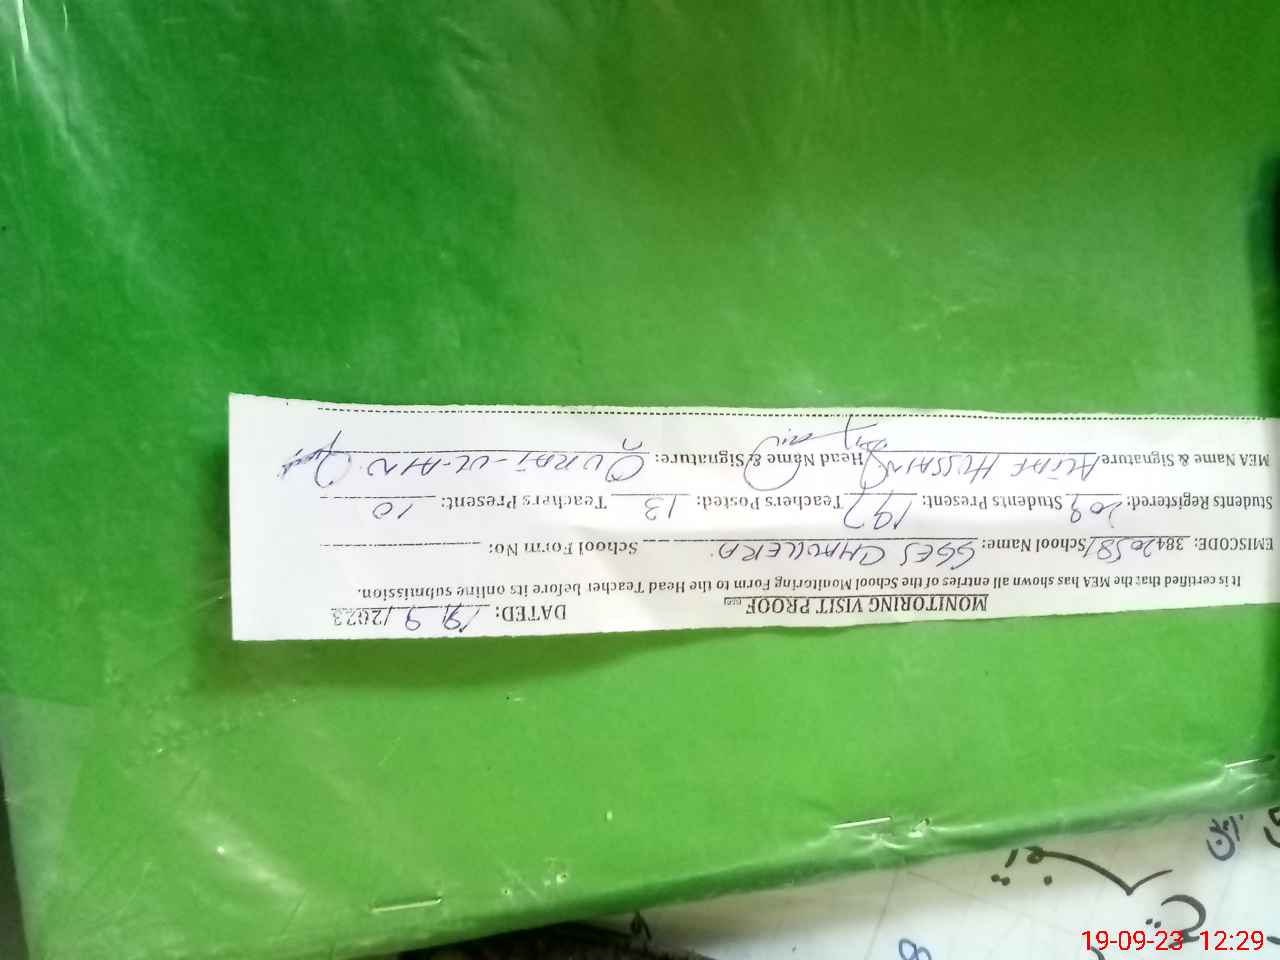 MONITORING VISIT PROOF DATED: 19/9/2023
It is certified that the MEA has shown all entries of the School Monitoring Form to the Head Teacher before its online submission.
EMISCODE: 38420581 School Name: GGES CHAOLLERA School Form No:
Students Registered: 209 Students Present: 197 Teachers Posted: 13 Teachers Present: 10
MEA Name & Signature: ALTAF HUSSAIN Head Name & Signature: QURAT-UL-AIN
19-09-23 12:29